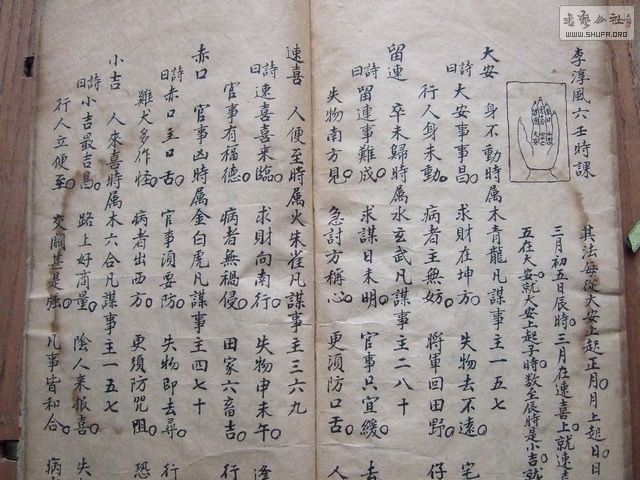 書藝公社
WWW.SHUFA.ORG
李淳風六壬時課
其法每從大安上起正月月上起日日
三月初五日辰時三月在速喜上就速喜
五在大安就大安上起子時数至辰時是小吉就
大安 身不動時属木青龍凡謀事主一五七
詩曰 大安事事昌 求財在坤方 失物去不遠 宅
行人身未動 病者主無妨 將軍回田野 仔
留連 卒未歸時属水玄武凡謀事主二八十
詩曰 留連事難成 求謀日未明 官事只宜緩 去
失物南方見 急討方稱心 更須防口舌 人
速喜 人便至時属火朱雀凡謀事主三六九
詩曰 速喜喜來臨 求財向南行 失物申未午 逢
官事有福德 病者無禍侵 田家六畜吉 行
赤口 官事凶時属金白虎凡謀事主四七十
詩曰 赤口主口舌 官事須要防 失物即去尋 行
雞犬多作怪 病者出西方 更須防咒咀 恐
小吉 人來喜時属木六合凡謀事主一五七
詩曰 小吉最吉昌 路上好商量 陰人來报喜 失
行人立便至 交關甚是強 凡事皆和合 病